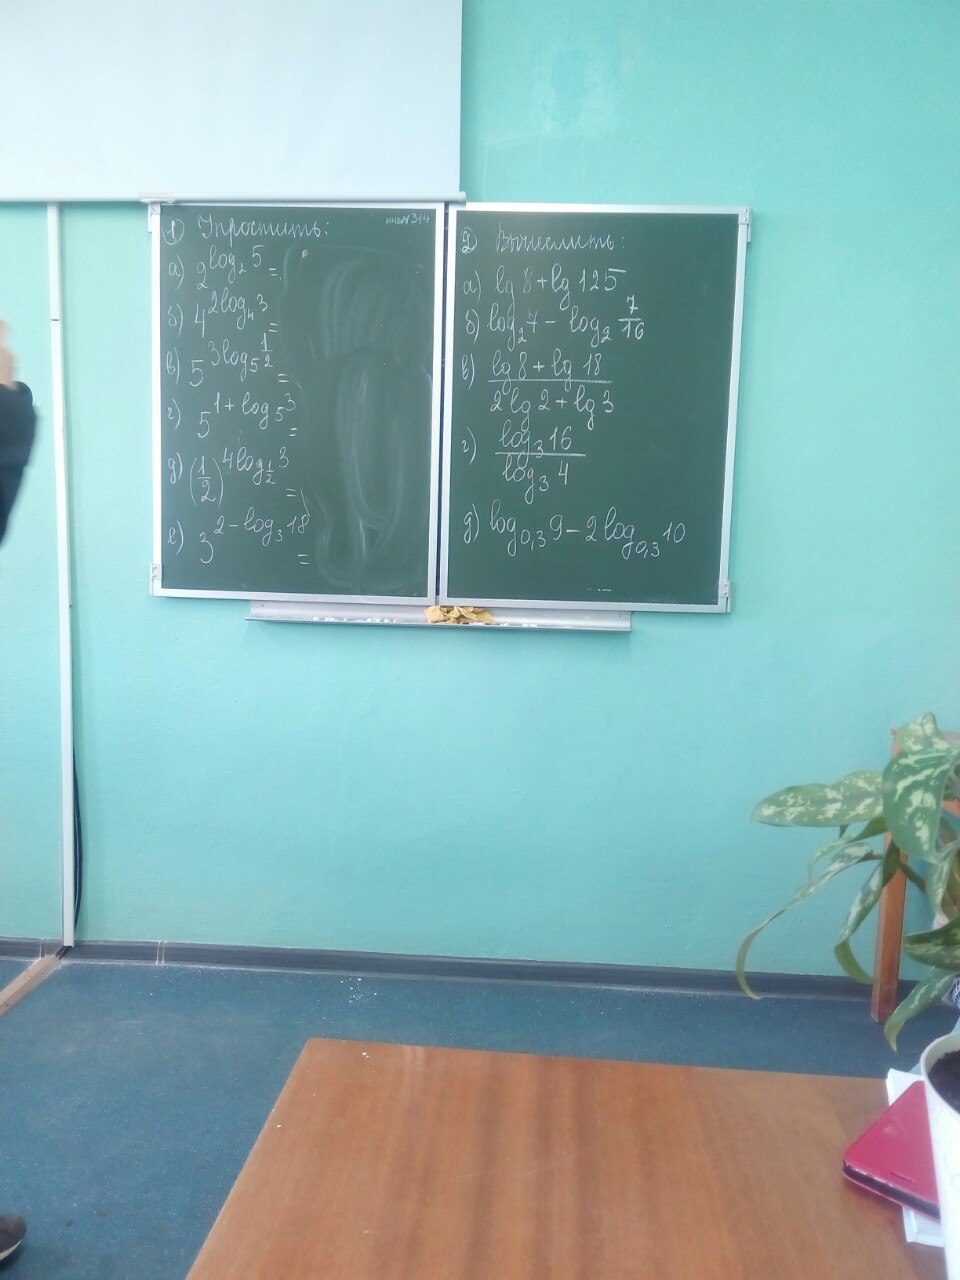 ① Упростить:
а) 2^{log₂ 5} =
б) 4^{2log₄ 3} =
в) 5^{3log₅ \frac{1}{2}} =
г) 5^{1 + log₅ 3} =
д) (\frac{1}{2})^{4log_{\frac{1}{2}} 3} =
е) 3^{2 - log₃ 18} =
② Вычислить:
а) lg 8 + lg 125
б) log₂ 7 - log₂ \frac{7}{16}
в) \frac{lg 8 + lg 18}{2 lg 2 + lg 3}
г) \frac{log₃ 16}{log₃ 4}
д) log_{0,3} 9 - 2 log_{0,3} 10